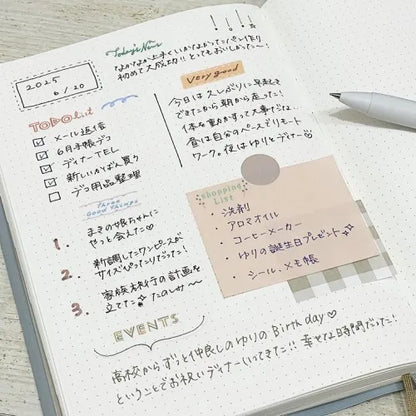 2025
6/20
Today's News
なかなか上手くいかなかったパン作り
初めて大成功!! とってもおいしかった〜!
TODO List
メール返信
6月手帳デコ
ディナーTEL
新しいかばん買う
デコ用品整理
Very good
今日は久しぶりに早起き
できたから朝から走った!
体を動かすって大事だね。
昼は自分のペースでリモート
ワーク。夜はゆりとディナー
THREE
GOOD THINGS
1. まきの娘ちゃんに
やっと会えた♡
2. 新調したワンピースが
サイズぴったりだった!
3. 家族旅行の計画を
立てた たのしみ〜
shopping
List
・洗剤
・アロマオイル
・コーヒーメーカー
・ゆりの誕生日プレゼント
・シール、メモ帳
EVENTS
高校からずっと仲良しのゆりのBirthday♡
ということでお祝いディナーいってきた!! 幸せな時間だった!